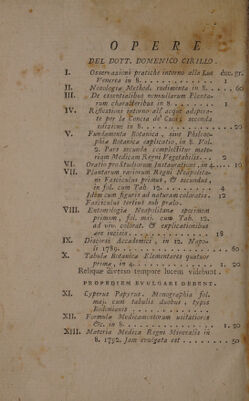 OPERE
DEL DOTT. DOMENICO CIRILLO.
I. Osservazioni pratiche intorno alla Lue duc. gr.
Venerea in 8. . . . . . . . . . 1
II. Nosologiæ Method. rudimenta in 8. . . . . 60
III. De essentialibus nonnullarum Planta-
rum characteribus in 8. . . . . . . 1
IV. Riflessioni intorno all' acque adopra-
te per la Concia de' Cuoi; seconda
edizione in 8. . . . . . . . . . . 20
V. Fundamenta Botanica, sive Philoso-
phiæ Botanica explicatio, in 8. Vol.
2. Pars secunda complectitur mate-
riam Medicam Regni Vegetabilis. . . 2
VI. Oratio pro Studiorum Instauratione, in 4. . . . . 10
VII. Plantarum rariorum Regni Neapolita-
ni Fasciculus primus, & secundus,
in fol. cum Tab. 12. . . . . . . . 4
Idem cum figuris ad naturam coloratis. 12
Fasciculus tertius sub prælo.
VIII. Entomologiæ Neapolitanæ specimen
primum, fol. maj. cum Tab. 12.
ad viv. colorat. & explicationibus
ære incisis. . . . . . . . . . . 18
IX. Discorsi Accademici, in 12. Napo-
li 1789. . . . . . . . . . . . . 60
X. Tabulæ Botanicæ Elementares quatuor
primæ, in 4. . . . . . . . . . . 1. 20
Reliquæ diverso tempore lucem videbunt.
PROPEDIEM EVULGARI DEBENT.
XI. Cyperus Papyrus. Monographia fol.
maj. cum tabulis duobus, typis
Bodonianis . . . . . . . . . . .
XII. Formulæ Medicamentorum usitatiores
&c. in 8. . . . . . . . . . . . 1. 20
XIII. Materia Medica Regni Mineralis in
8. 1792. Jam evulgata est . . . . . . . . 50